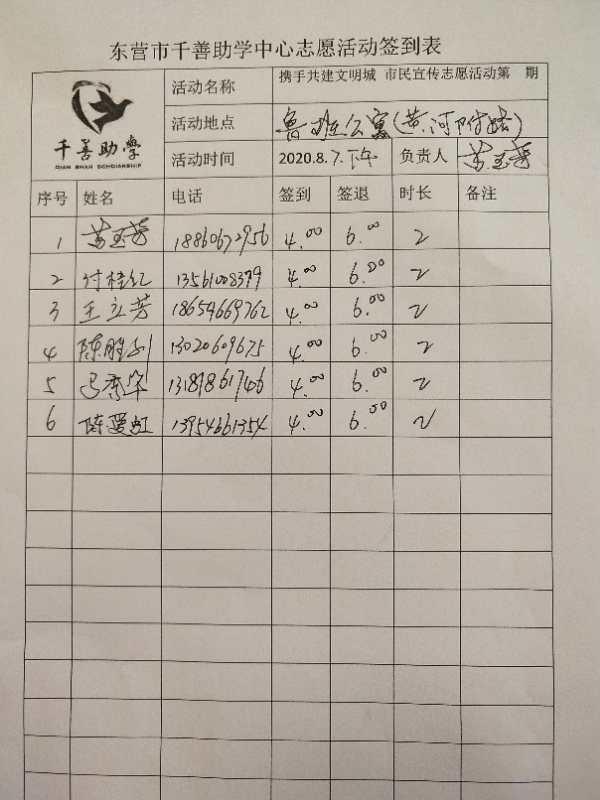 东营市千善助学中心志愿活动签到表
千善助學
QIAN SHAN SCHOLARSHIP
活动名称 携手共建文明城 市民宣传志愿活动第 期
活动地点 鲁班公寓(黄河附路)
活动时间 2020.8.7.下午 负责人 黄玉芳
序号 姓名 电话 签到 签退 时长 备注
1 黄玉芳 18860672956 4.00 6.00 2
2 付桂红 13561008379 4.00 6.00 2
3 王立芳 18654669762 4.00 6.00 2
4 陈胜利 13020609675 4.00 6.00 2
5 13181861746 4.00 6.00 2
6 陈爱虹 13954661354 4.00 6.00 2